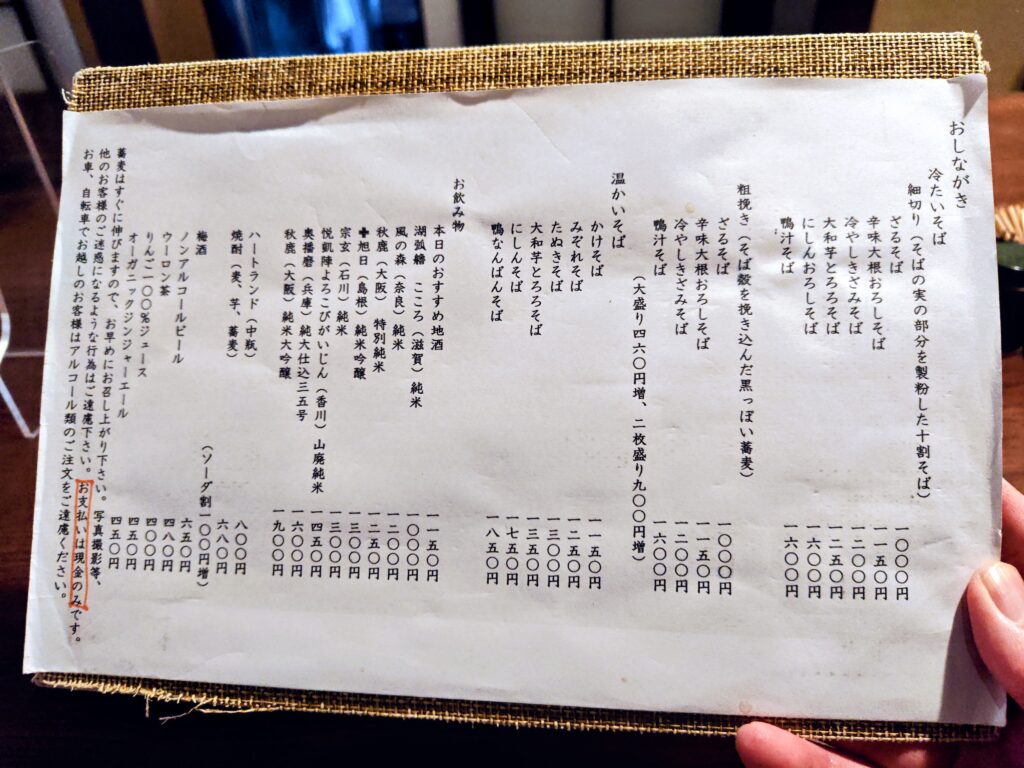 おしながき
冷たいそば
細切り（そばの実の部分を製粉した十割そば）
ざるそば 一〇〇〇円
辛味大根おろしそば 一一五〇円
冷やしきざみそば 一二〇〇円
大和芋とろろそば 一二五〇円
にしんおろしそば 一六〇〇円
鴨汁そば 一六〇〇円
粗挽き（そば殻を挽き込んだ黒っぽい蕎麦）
ざるそば 一〇〇〇円
辛味大根おろしそば 一一五〇円
冷やしきざみそば 一二〇〇円
鴨汁そば 一六〇〇円
（大盛り四六〇円増、二枚盛り九〇〇円増）
温かいそば
かけそば 一一五〇円
みぞれそば 一二五〇円
たぬきそば 一三〇〇円
大和芋とろろそば 一三五〇円
にしんそば 一七五〇円
鴨なんばんそば 一八五〇円
お飲み物
本日のおすすめ地酒 一一五〇円
湖弧艪 こころ（滋賀）純米 一〇〇〇円
風の森（奈良）純米 一二〇〇円
秋鹿（大阪）特別純米 一二五〇円
✚旭日（島根）純米吟醸 一三〇〇円
宗玄（石川）純米 一三〇〇円
悦凱陣よろこびがいじん（香川）山廃純米 一四五〇円
奥播磨（兵庫）純大仕込三五号 一六〇〇円
秋鹿（大阪）純米大吟醸 一九〇〇円
ハートランド（中瓶） 八〇〇円
焼酎（麦、芋、蕎麦） 六八〇円
（ソーダ割一〇〇円増）
梅酒 六五〇円
ノンアルコールビール 四八〇円
ウーロン茶 四〇〇円
りんご一〇〇％ジュース 四五〇円
オーガニックジンジャーエール 四五〇円
蕎麦はすぐに伸びますので、お早めにお召し上がり下さい。写真撮影等、
他のお客様のご迷惑になるような行為はご遠慮下さい。お支払いは現金のみです。
お車、自転車でお越しのお客様はアルコール類のご注文をご遠慮ください。